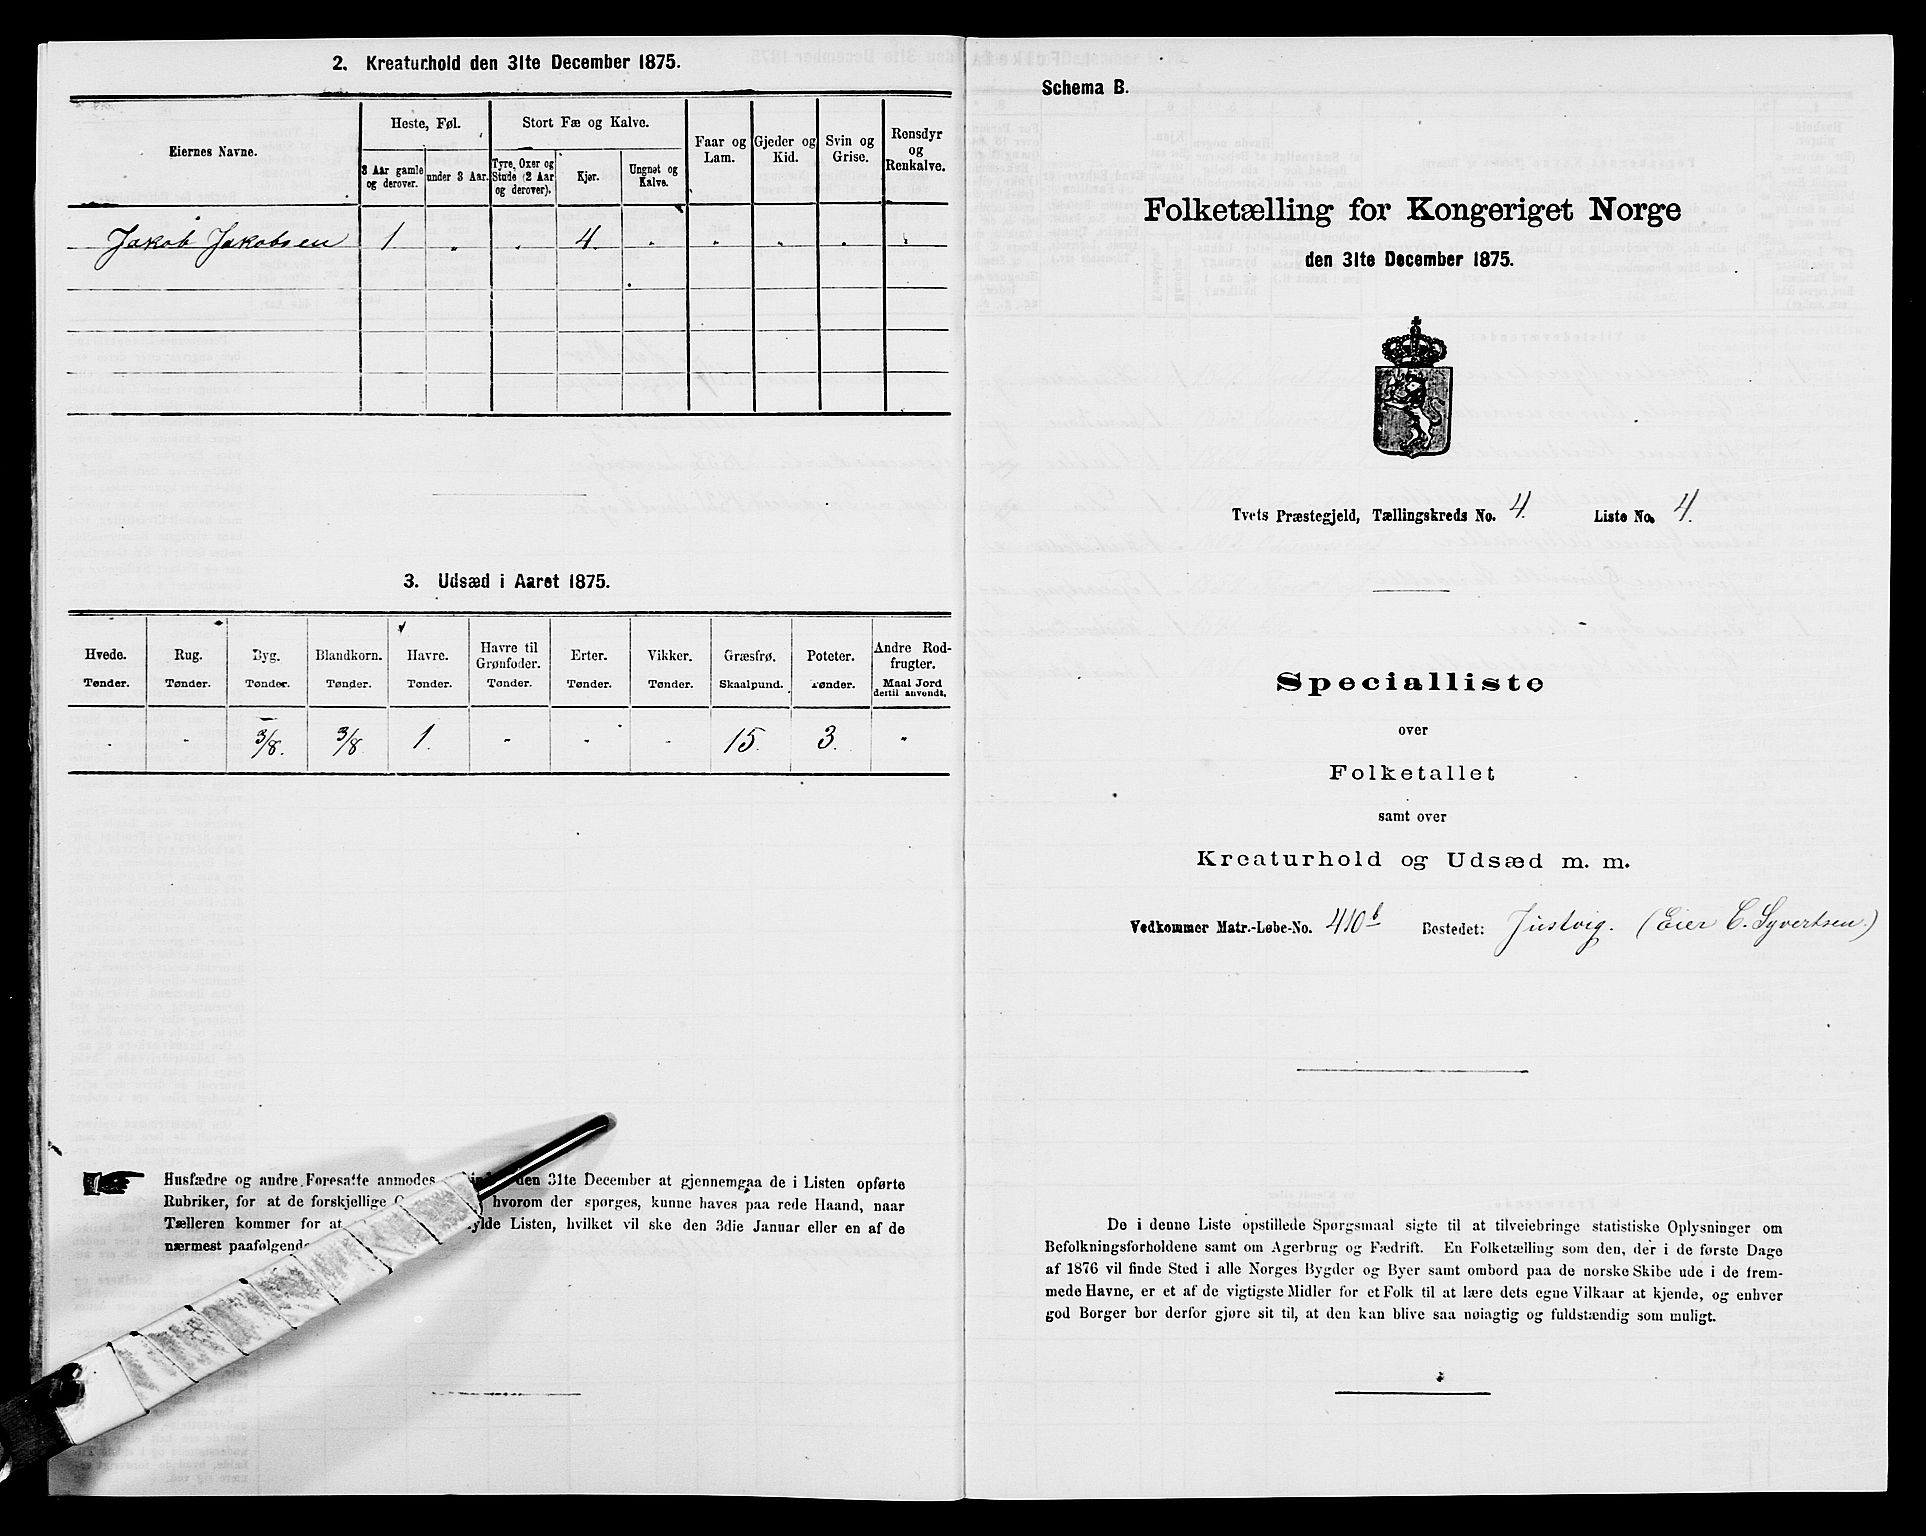 2. Kreaturhold den 31te December 1875.
Eiernes Navne.
Heste, Føl.
3 Aar gamle og derover.
under 3 Aar.
Stort Fæ og Kalve.
Tyre, Oxer og Stude (2 Aar og derover).
Kjør.
Ungnøt og Kalve.
Faar og Lam.
Gjeder og Kid.
Svin og Grise.
Rensdyr og Renkalve.
Jakob Jakobsen 1 " " 4. " " " " "
3. Udsæd i Aaret 1875.
Hvede. Rug. Byg. Blandkorn. Havre. Havre til Grønfoder. Erter. Vikker. Græsfrø. Poteter. Andre Rodfrugter.
Tønder. Tønder. Tønder. Tønder. Tønder. Tønder. Tønder. Tønder. Skaalpund. Tønder. Maal Jord dertil anvendt.
" " 3/8. 3/8 1. " " " 15. 3. "
Husfædre og andre Foresatte anmodes den 31te December at gjennemgaa de i Listen opførte
Rubriker, for at de forskjellige hvorom der spørges, kunne haves paa rede Haand, naar
Tælleren kommer for at ylde Listen, hvilket vil ske den 3die Januar eller en af de
nærmest paafølgende
Schema B.
Folketælling for Kongeriget Norge
den 31te December 1875.
Tvets Præstegjeld, Tællingskreds No. 4. Liste No. 4.
Specialliste
over
Folketallet
samt over
Kreaturhold og Udsæd m. m.
Vedkommer Matr.-Løbe-No. 410b Bostedet: Justvig. (Eier C. Syvertsen.)
De i denne Liste opstillede Spørgsmaal sigte til at tilveiebringe statistiske Oplysninger om
Befolkningsforholdene samt om Agerbrug og Fædrift. En Folketælling som den, der i de første Dage
af 1876 vil finde Sted i alle Norges Bygder og Byer samt ombord paa de norske Skibe ude i de frem-
mede Havne, er et af de vigtigste Midler for et Folk til at lære dets egne Vilkaar at kjende, og enhver
god Borger bør derfor gjøre sit til, at den kan blive saa nøiagtig og fuldstændig som muligt.